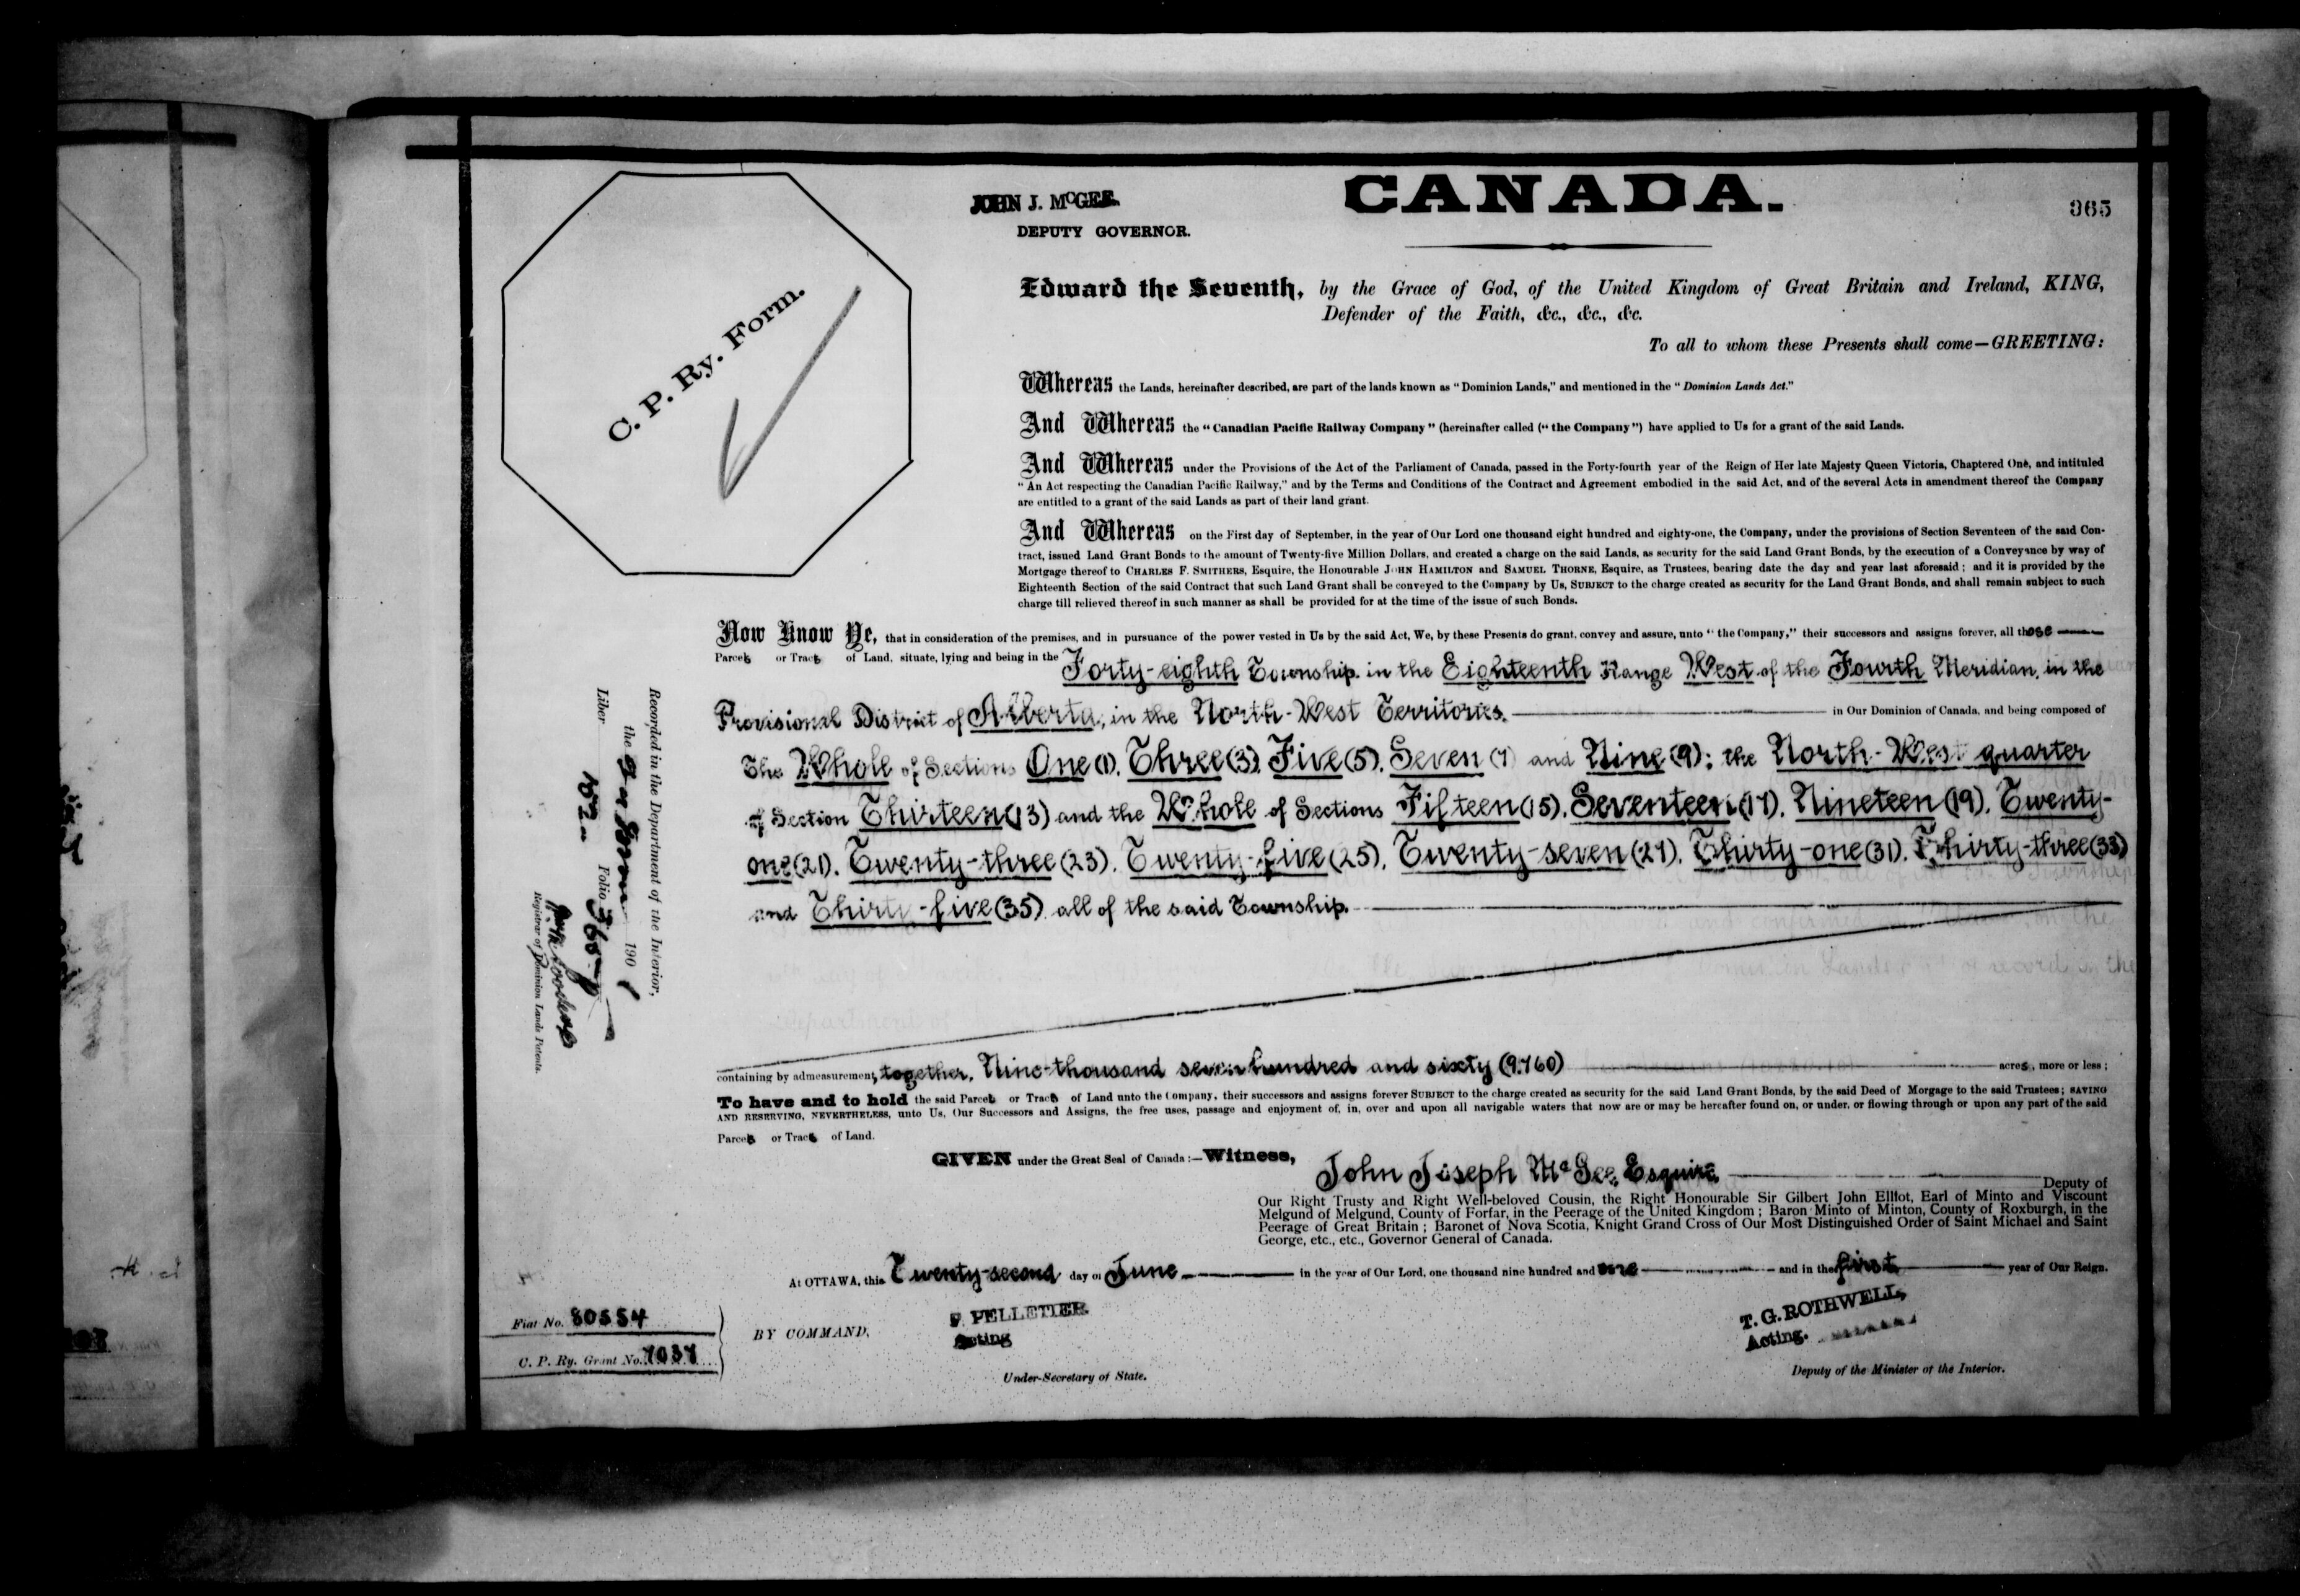 JOHN J. McGEE.
DEPUTY GOVERNOR.
CANADA.
365
C. P. Ry. Form.
Edward the Seventh, by the Grace of God, of the United Kingdom of Great Britain and Ireland, KING,
Defender of the Faith, &c., &c., &c.
To all to whom these Presents shall come—GREETING:
Whereas the Lands, hereinafter described, are part of the lands known as "Dominion Lands," and mentioned in the "Dominion Lands Act."
And Whereas the "Canadian Pacific Railway Company" (hereinafter called ("the Company") have applied to Us for a grant of the said Lands.
And Whereas under the Provisions of the Act of the Parliament of Canada, passed in the Forty-fourth year of the Reign of Her late Majesty Queen Victoria, Chaptered One, and intituled
"An Act respecting the Canadian Pacific Railway," and by the Terms and Conditions of the Contract and Agreement embodied in the said Act, and of the several Acts in amendment thereof the Company
are entitled to a grant of the said Lands as part of their land grant.
And Whereas on the First day of September, in the year of Our Lord one thousand eight hundred and eighty-one, the Company, under the provisions of Section Seventeen of the said Con-
tract, issued Land Grant Bonds to the amount of Twenty-five Million Dollars, and created a charge on the said Lands, as security for the said Land Grant Bonds, by the execution of a Conveyance by way of
Mortgage thereof to CHARLES F. SMITHERS, Esquire, the Honourable JOHN HAMILTON and SAMUEL THORNE, Esquire, as Trustees, bearing date the day and year last aforesaid; and it is provided by the
Eighteenth Section of the said Contract that such Land Grant shall be conveyed to the Company by Us, SUBJECT to the charge created as security for the Land Grant Bonds, and shall remain subject to such
charge till relieved thereof in such manner as shall be provided for at the time of the issue of such Bonds.
Now Know Ye, that in consideration of the premises, and in pursuance of the power vested in Us by the said Act, We, by these Presents do grant, convey and assure, unto "the Company," their successors and assigns forever, all those
Parcels or Tracts of Land, situate, lying and being in the Forty-eighth Township, in the Eighteenth Range West of the Fourth Meridian, in the
Provisional District of Alberta, in the North-West Territories, in Our Dominion of Canada, and being composed of
The Whole of Sections One (1), Three (3), Five (5), Seven (7) and Nine (9); the North-West quarter
of Section Thirteen (13) and the Whole of Sections Fifteen (15), Seventeen (17), Nineteen (19), Twenty-
one (21), Twenty-three (23), Twenty-five (25), Twenty-seven (27), Thirty-one (31), Thirty-three (33)
and Thirty-five (35) all of the said Township.
containing by admeasurement, together, Nine thousand seven hundred and sixty (9,760) acres, more or less;
To have and to hold the said Parcels or Tracts of Land unto the Company, their successors and assigns forever SUBJECT to the charge created as security for the said Land Grant Bonds, by the said Deed of Morgage to the said Trustees; SAVING
AND RESERVING, NEVERTHELESS, unto Us, Our Successors and Assigns, the free uses, passage and enjoyment of, in, over and upon all navigable waters that now are or may be hereafter found on, or under, or flowing through or upon any part of the said
Parcels or Tracts of Land.
GIVEN under the Great Seal of Canada:—Witness, John Joseph McGee, Esquire, Deputy of
Our Right Trusty and Right Well-beloved Cousin, the Right Honourable Sir Gilbert John Elliot, Earl of Minto and Viscount
Melgund of Melgund, County of Forfar, in the Peerage of the United Kingdom; Baron Minto of Minton, County of Roxburgh, in the
Peerage of Great Britain; Baronet of Nova Scotia, Knight Grand Cross of Our Most Distinguished Order of Saint Michael and Saint
George, etc., etc., Governor General of Canada.
At OTTAWA, this Twenty-second day of June in the year of Our Lord, one thousand nine hundred and one and in the first year of Our Reign.
Fiat No. 80554
C. P. Ry. Grant No. 7037
BY COMMAND,
P. PELLETIER
Acting
Under-Secretary of State.
T. G. ROTHWELL,
Acting.
Deputy of the Minister of the Interior.
Recorded in the Department of the Interior,
the 190 1
Liber 152 Folio 365
Registrar of Dominion Lands Patents.